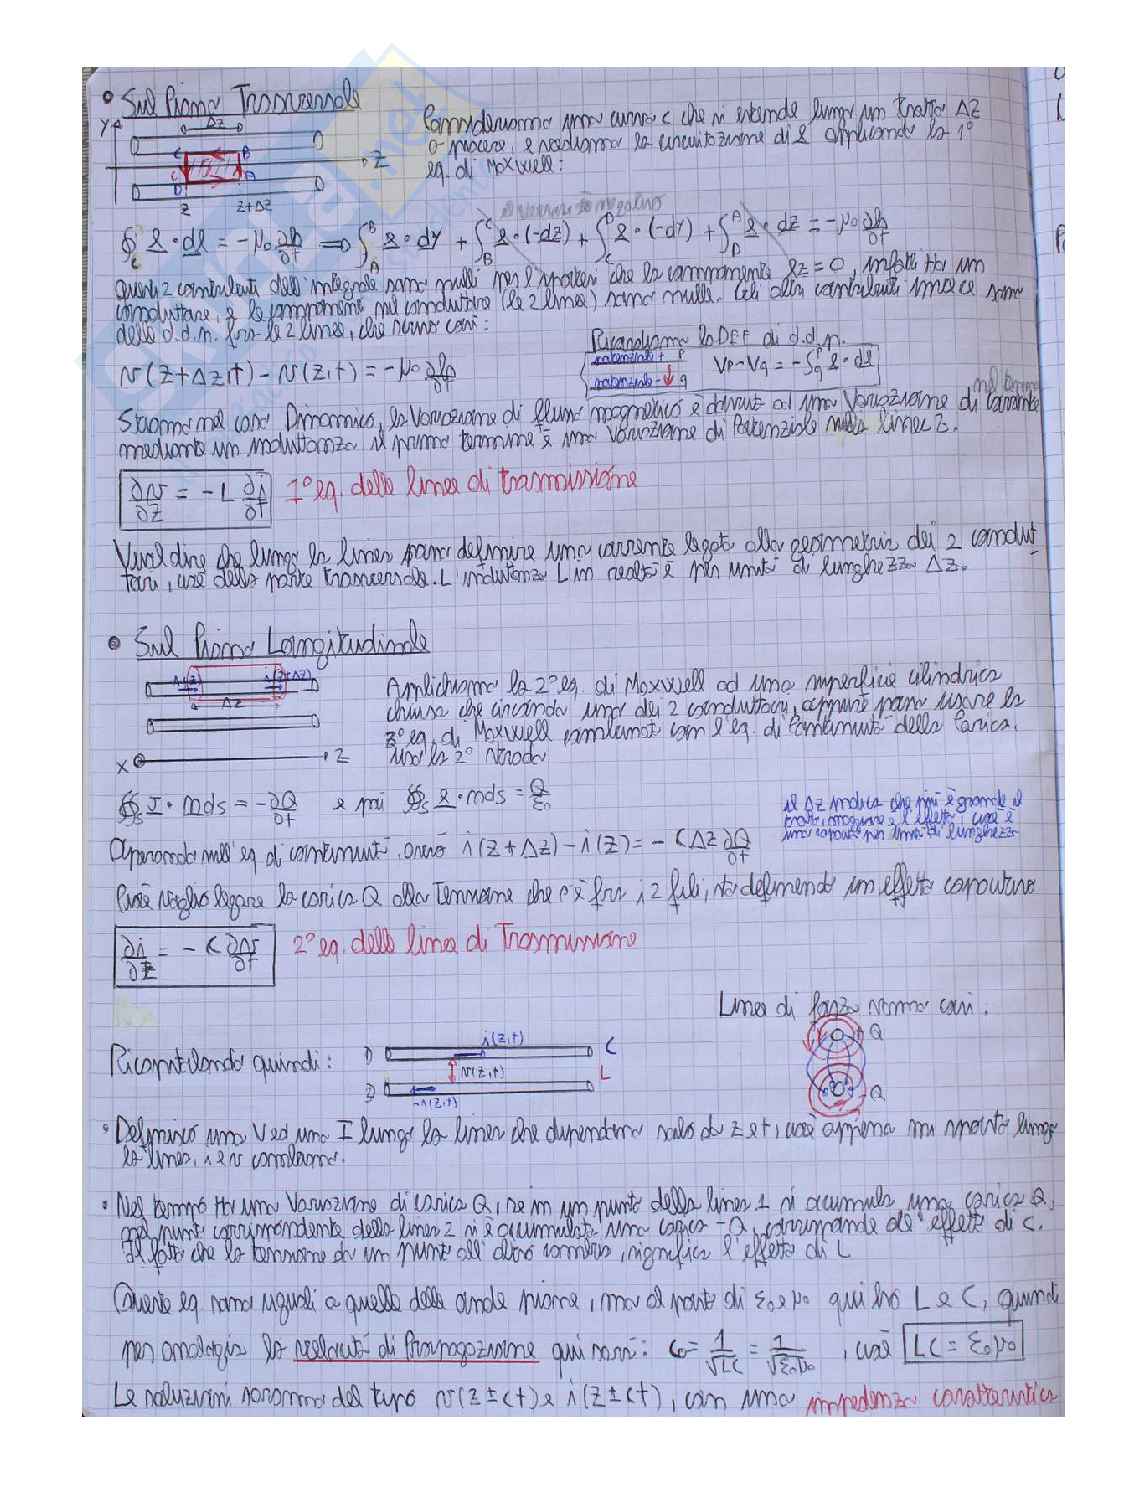 • Sul Piano Trasversale
Consideriamo una curva c che si estende lungo un tratto Δz
a piacere, e vediamo la circuitazione di e applicando la 1°
eq. di Maxwell:
Y Δz
C B
Z
D A
z z+Δz
∮c e · dl = -μ0 ∂h/∂t ⟹ ∫A^B e · dy + ∫B^C e · (-dz) + ∫C^D e · (-dy) + ∫D^A e · dz = -μ0 ∂h/∂t
questi 2 contributi dell'integrale sono nulli per l'ipotesi che la componente ez = 0, infatti ho un
conduttore, e le componenti nel conduttore (le 2 linee) sono nulle. Gli altri contributi invece sono
delle d.d.p. fra le 2 linee, che scrivo così:
Ricordiamo la DEF di d.d.p.
potenziale + p
potenziale - q
Vp-Vq = -∫q^p e · dl
v(z+Δz,t) - v(z,t) = -μ0 ∂h/∂t
Siccome nel caso Dinamico, la Variazione di flusso magnetico è dovuta ad una Variazione di corrente
nel tempo
mediante un induttanza il primo termine è una Variazione di Potenziale nella linea z.
∂v/∂z = -L ∂i/∂t 1° eq. della linea di trasmissione
Vuol dire che lungo la linea posso definire una corrente legata alla geometria dei 2 condut
tori, cioè della parte trasversale. L induttanza L in realtà è per unità di lunghezza Δz.
• Sul Piano Longitudinale
i(z) i(z+Δz)
Δz
X Z
Applichiamo la 2° eq. di Maxwell ad una superficie cilindrica
chiusa che circonda uno dei 2 conduttori, oppure posso usare la
3° eq. di Maxwell combinata con l'eq. di Continuità della Carica.
Uso la 2° strada
∮s J · nds = -∂Q/∂t e poi ∮s e · nds = Q/ε0
il Δz indica che più è grande il
tratto, maggiore è l'effetto, cioè è
una capacità per unità di lunghezza
Operando nell'eq di continuità, avrò i(z+Δz) - i(z) = -CΔz ∂Q/∂t
Cioè voglio legare la carica Q alla Tensione che c'è fra i 2 fili, sto definendo un effetto capacitivo
∂i/∂z = -C ∂v/∂t 2° eq. della linea di Trasmissione
Linee di forza saranno così:
Ricapitolando quindi:
1) i(z,t) C
v(z,t) L
2) -i(z,t)
Q
-Q
• Definisco una V ed una I lungo la linea che dipendono solo da z e t, cioè appena mi sposto lungo
la linea, i e v cambiano.
• Nel tempo ho una Variazione di carica Q, se in un punto della linea 1 si accumula una carica Q,
nel punto corrispondente della linea 2 si è accumulata una carica -Q, corrisponde all'effetto di C.
Il fatto che la tensione da un punto all'altro cambia, significa l'effetto di L
Queste eq sono uguali a quelle delle onde piane, ma al posto di ε0 e μ0 qui ho L e C, quindi
per analogia la velocità di Propagazione qui sarà: c0 = 1/√LC = 1/√ε0μ0 , cioè LC = ε0μ0
Le soluzioni saranno del tipo v(z±ct) e i(z±ct), con una impedenza caratteristica